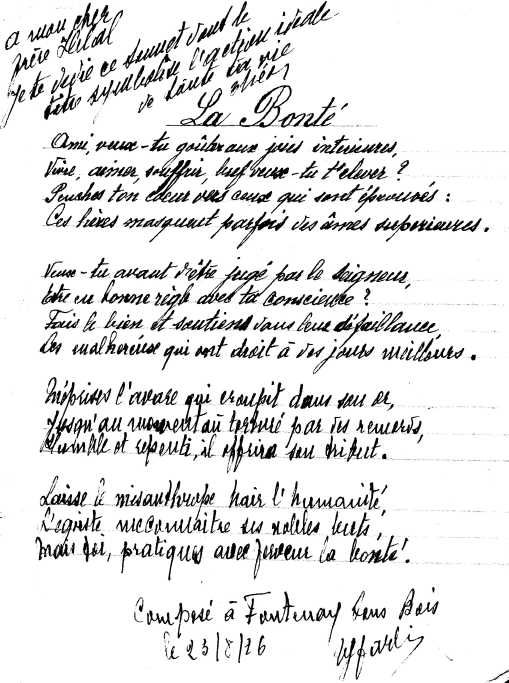 a mon cher
frère Hilal
Je te dédie ce sonnet dont le
titre symbolise l'action idéale
de toute ta vie
La Bonté
Ami, veux-tu goûter aux joies intérieures,
Vivre, aimer, souffrir, bref veux-tu t'élever ?
Penches ton cœur vers ceux qui sont éprouvés :
Ces hères masquent parfois des âmes supérieures.
Veux-tu avant d'être jugé par le Seigneur,
Etre en bonne règle avec ta conscience ?
Fais le bien et soutiens dans leur défaillance,
Les malheureux qui ont droit à des jours meilleurs.
Méprises l'avare qui croupit dans son or,
Jusqu'au moment où torturé par des remords,
Humble et repenti, il offrira son tribut.
Laisse le misanthrope haïr l'humanité,
L'égoïste méconnaître ses nobles buts,
Mais toi, pratiques avec ferveur la bonté.
Composé à Fontenay Sous Bois
le 23/8/26